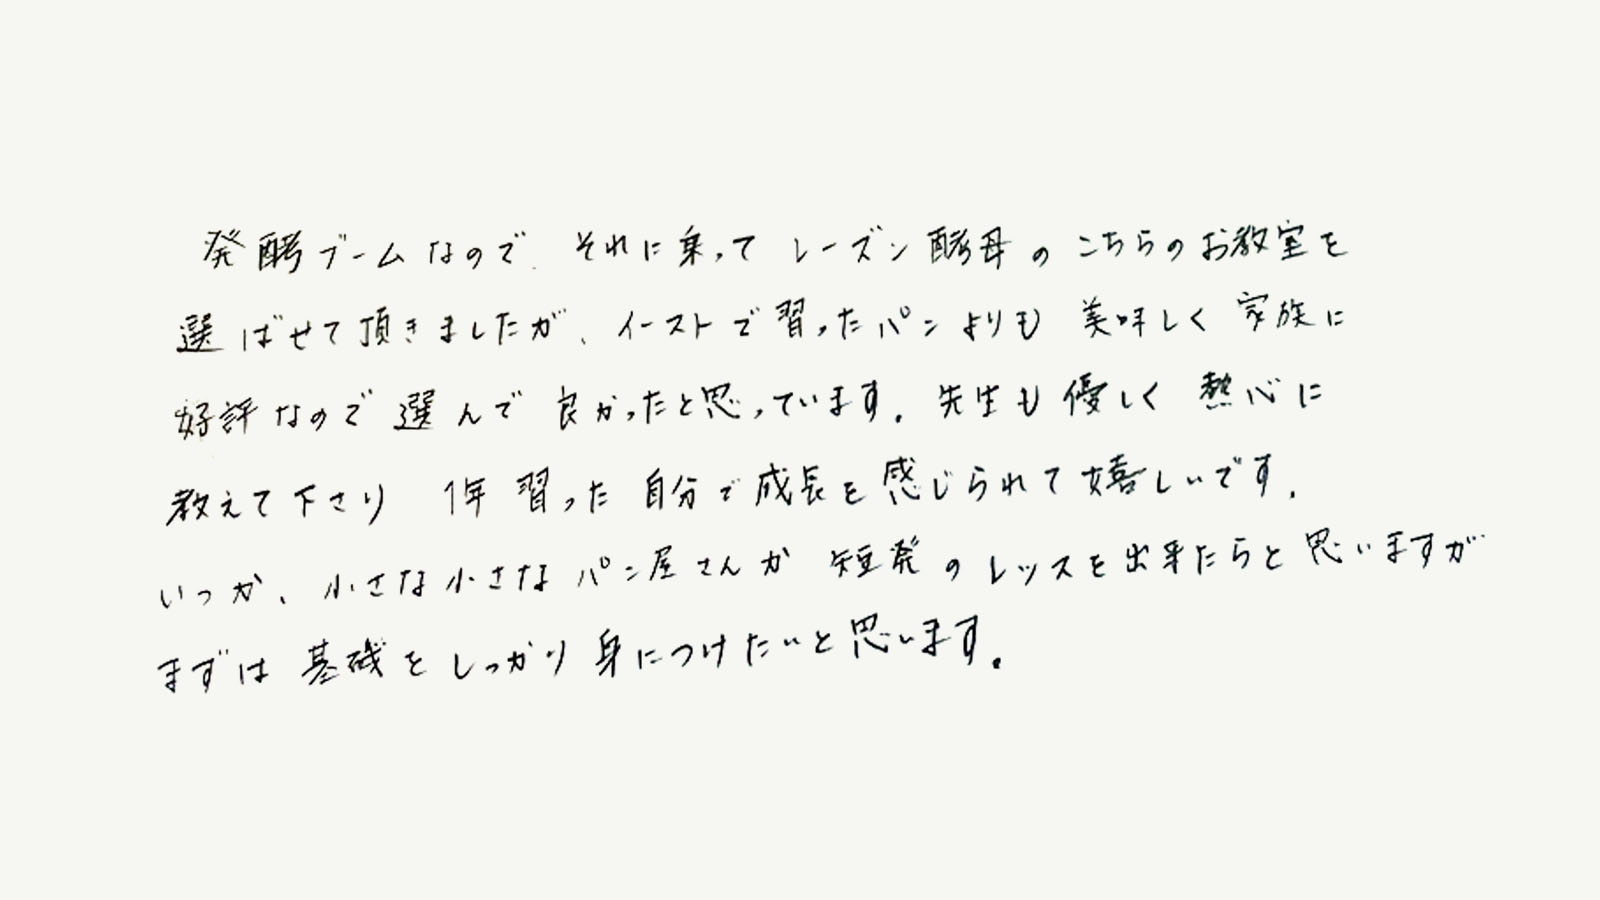 発酵ブームなので、それに乗って レーズン酵母の こちらのお教室を
選ばせて頂きましたが、イーストで習ったパンよりも 美味しく 家族に
好評なので 選んで 良かったと思っています。先生も 優しく 熱心に
教えて下さり 1年 習った 自分で成長を感じられて嬉しいです。
いつか、小さな小さな パン屋さんか 短発のレッスを出来たらと思いますが
まずは 基礎をしっかり身につけたいと思います。